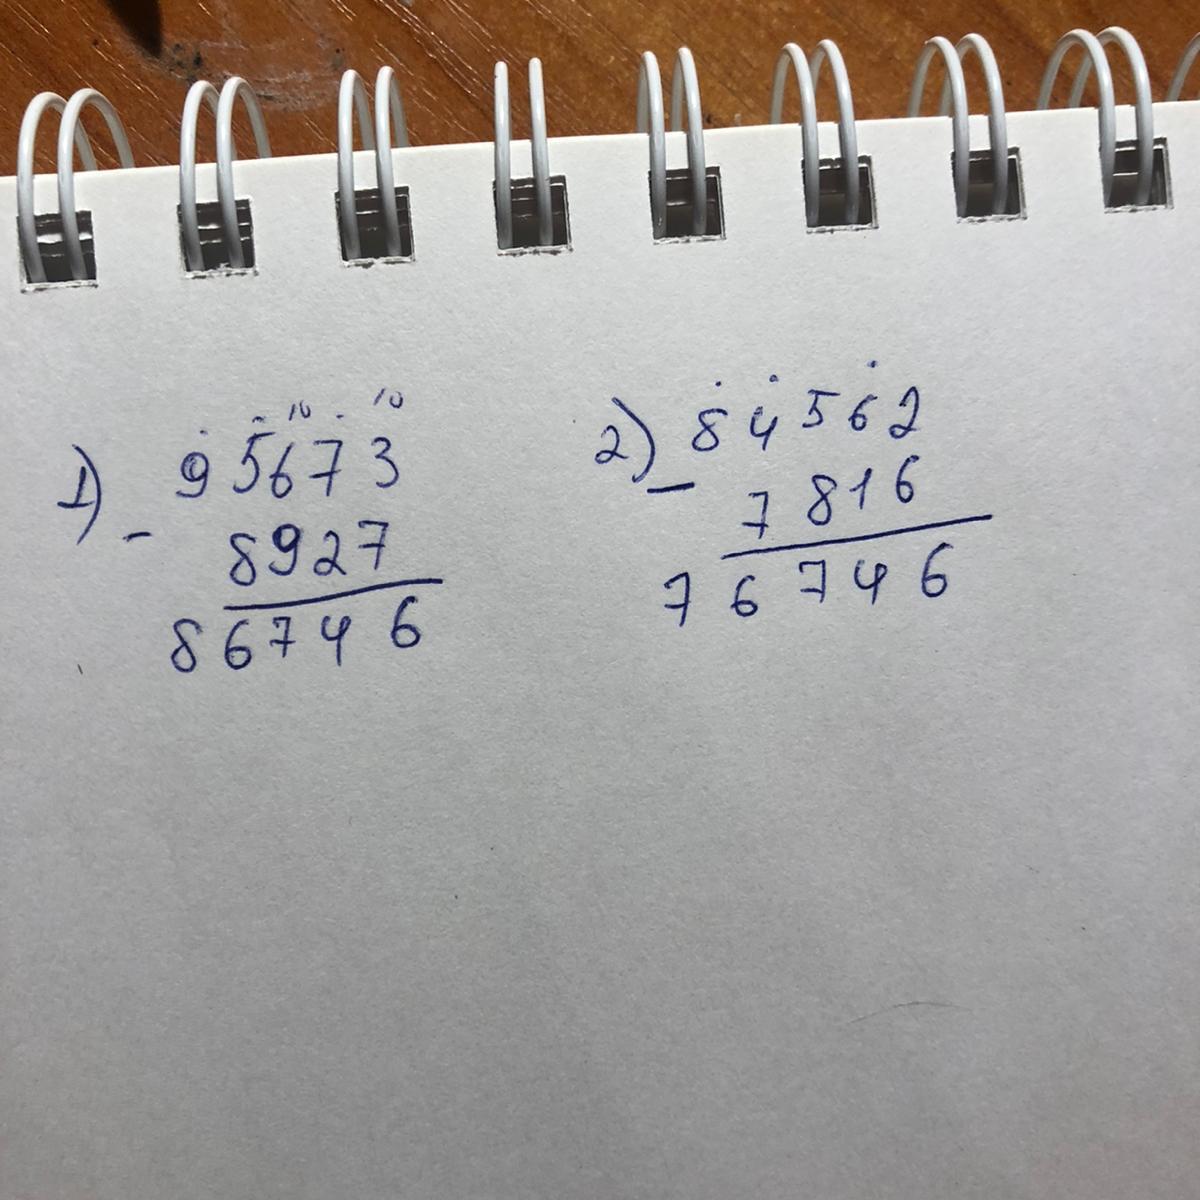 1) 95673
- 8927
86746
2) 84562
- 7816
76746